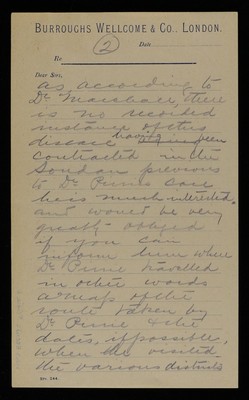 BURROUGHS WELLCOME & CO., LONDON.
(2) Date
Re
Dear Sirs,
as according to
Dr Marshall, there
is no recorded
instance of this
disease having been
contracted in the
Soudan previous
to Dr Pirrie's case
he is much interested
and would be very
greatly obliged
if you can
inform him where
Dr Pirrie travelled
in other words
a map of the
route taken by
Dr Pirrie & the
dates, if possible,
when he visited
the various districts